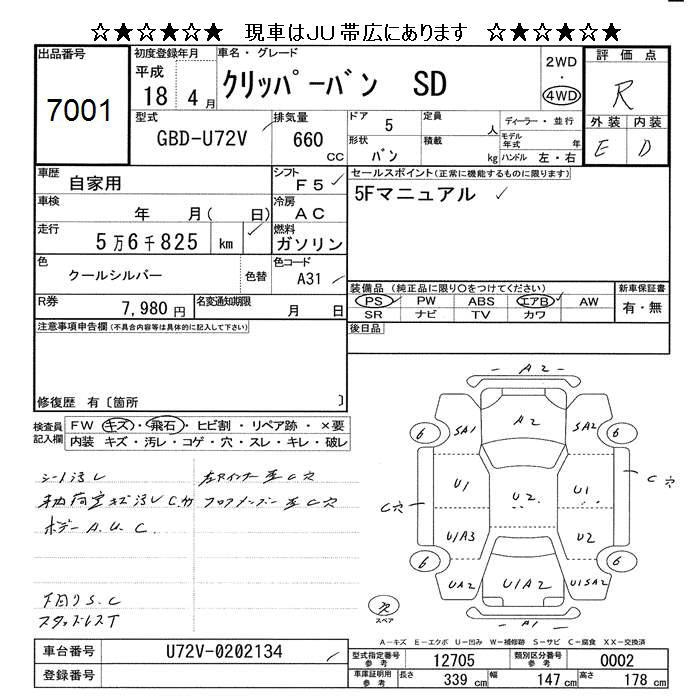 ☆★☆★☆★ 現車はJU帯広にあります ☆★☆★☆★
出品番号
7001
初度登録年月
平成
18 年 4 月
車名・グレード
クリッパーバン SD
2WD
・
4WD
評価点
R
外装 内装
E D
型式
GBD-U72V
排気量
660
cc
ドア
5
定員
人
形状
バン
積載
kg
ディーラー・並行
モデル年式 年
ハンドル 左・右
車歴
自家用
シフト
F5
車検
年 月( 日)
冷房
AC
走行
5万6千825 km
燃料
ガソリン
色
クールシルバー
色替
色コード
A31
R券
7,980 円
名変通知期限
月 日
セールスポイント(正常に機能するものに限ります)
5Fマニュアル
装備品(純正品に限り○をつけてください)
PS PW ABS エアB AW
SR ナビ TV カワ
新車保証書
有・無
後日品
注意事項申告欄(不具合内容等は具体的に記入して下さい)
修復歴 有〔箇所 〕
検査員記入欄
FW キズ・飛石・ヒビ割・リペア跡・×要
内装 キズ・汚レ・コゲ・穴・スレ・キレ・破レ
シート汚レ
左Rインナー 歪 C 穴
荷室キズ汚レ C
フロアメンバー 歪 C 穴
ボデー A.U.C.
下回りS.C
スタッドレスT
A2
A2
6
SA1
SA2
6
C穴
U1
U2
U1
C穴
U1A3
U2
6
UA2
U1A2
U1SA2
6
欠
スペア
A1
A-キズ E-エクボ U-凹み W-補修跡 S-サビ C-腐食 XX-交換済
車台番号
U72V-0202134
登録番号
型式指定番号
参考
12705
類別区分番号
参考
0002
車庫証明用
参考
長さ 339 cm 幅 147 cm 高さ 178 cm